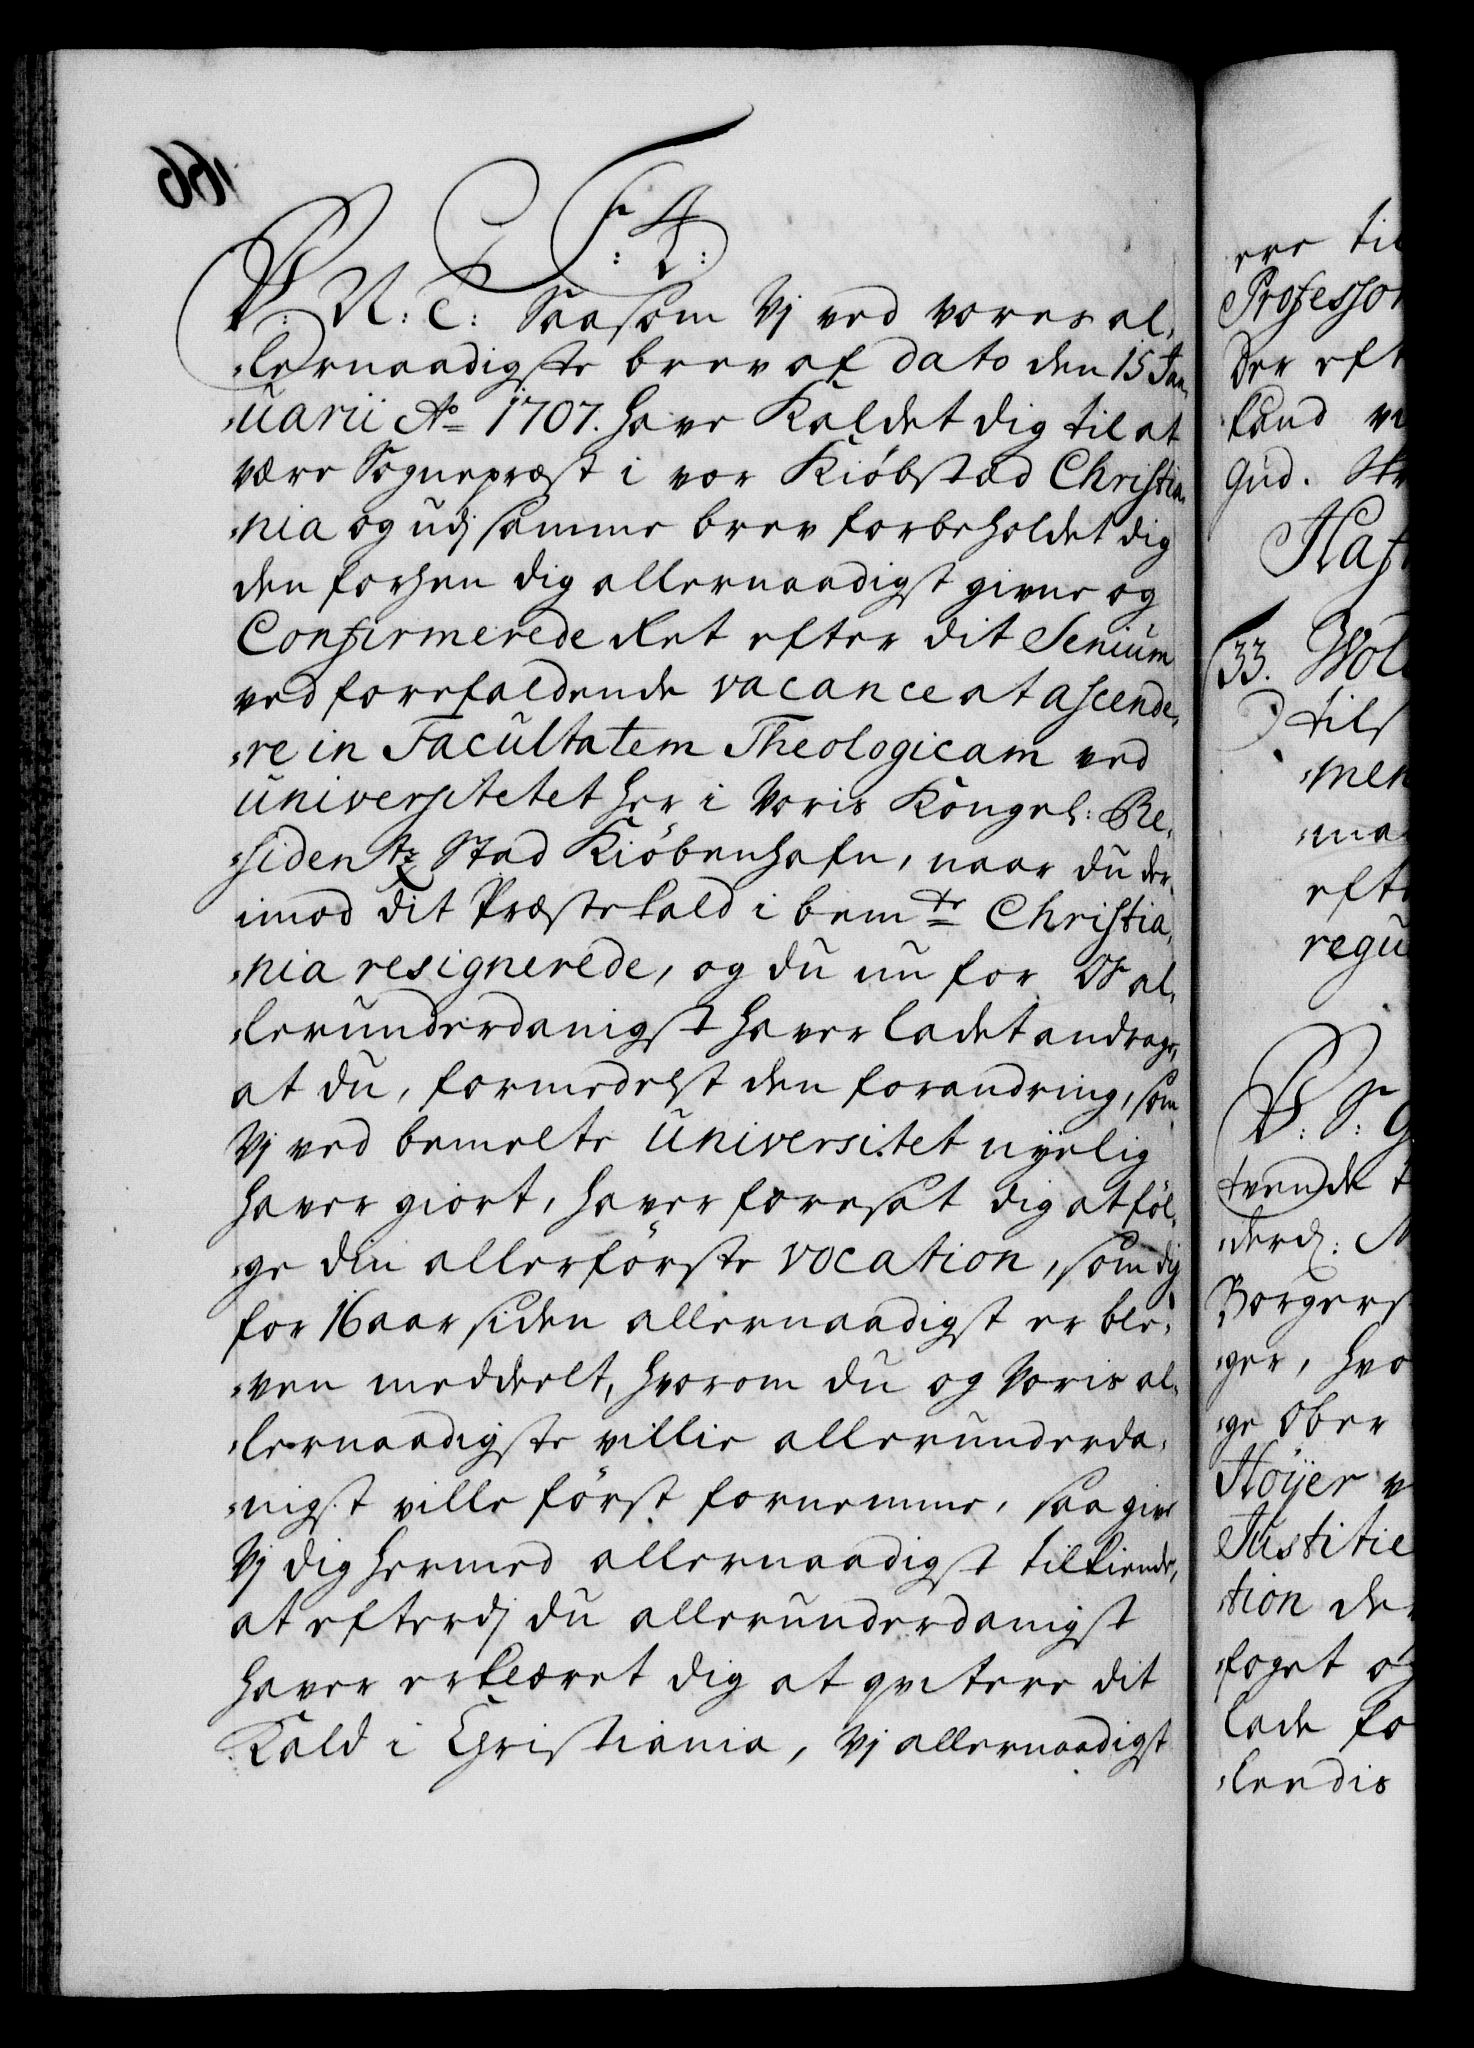 166
F: 4.
P: N: C: Saasom Vj ved vores al„
„lernaadigste brev af dato den 15 Jan„
„uarii Aº 1707. have Kaldet dig til at
være Sognepræst i vor Kiöbstæd Christia„
„nia og udj samme brev forbeholdet dig
den forhen dig allernaadigst givne og
Confirmerede Ret efter dit Senium
ved forefaldende vacance at ascende„
„re in Facultatem Theologicam ved
universitetet her i Voris Kongel: Re„
„sidentz Stad Kiöbenhafn, naar du der„
imod dit Præstekald i bemte Christia„
„nia resignerede, og du nu for Os al„
„lerunderdanigst haver ladet andrage,
at du, formedelst den forandring, som
Vj ved bemelte Universitet nyelig
haver giort, haver foresat dig at föl„
„ge din allerförste vocation, som dig
for 16 aar siden allernaadigst er ble„
„ven meddeelt, hvorom du og Voris al„
„lernaadigste villie allerunderda„
„nigst ville först fornemme, saa give
Vj dig hermed allernaadigst tilkiende,
at efterdj du allerunderdanigst
haver erklæret dig at qvitere dit
Kald i Christiania, Vj allernaadigst
ere til
Professor
Der eft
kand
Gud.
Haf
33. Wol
tils
„men
„ma
efte
regu
P: S: G
tvende t
„derd: N
Borgers
„ger, hvo
„ge Ober
Höyer v
Justitie
„tion der
„foget og
lade fo
„lerdis